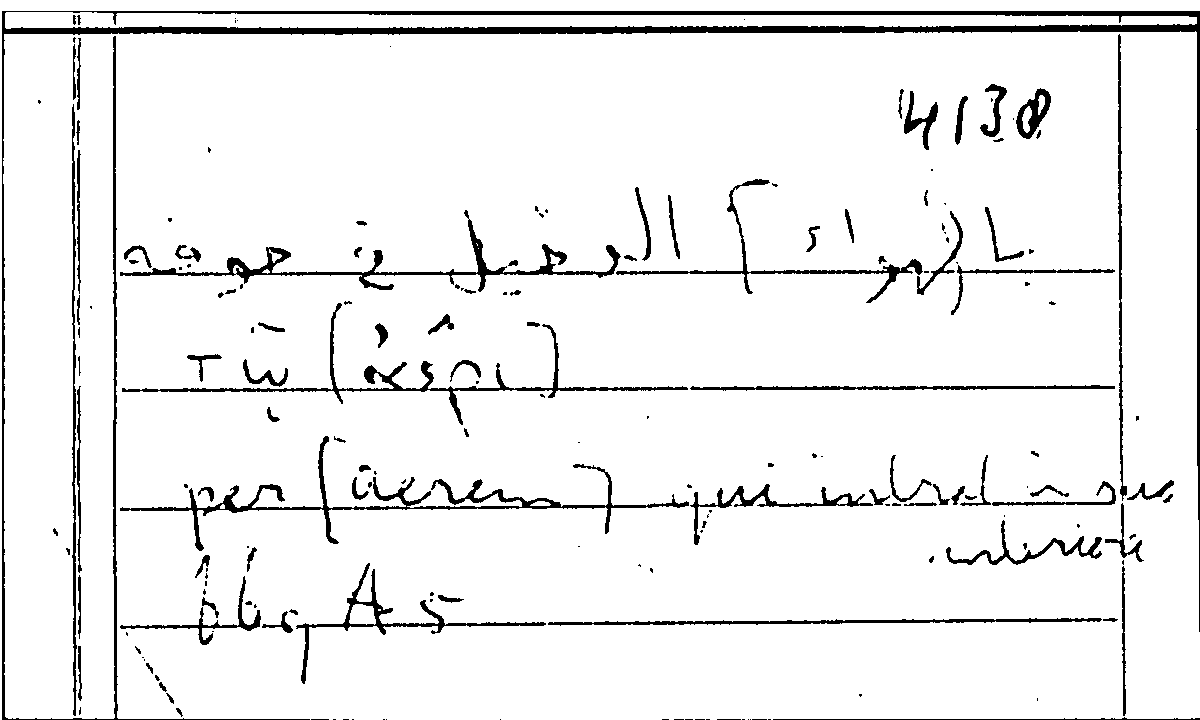 4138
بالهواء] الدخيل في جوفه
τῷ [ἀέρι]
per [aerem] qui intrat in sua
interiora
66 A 5